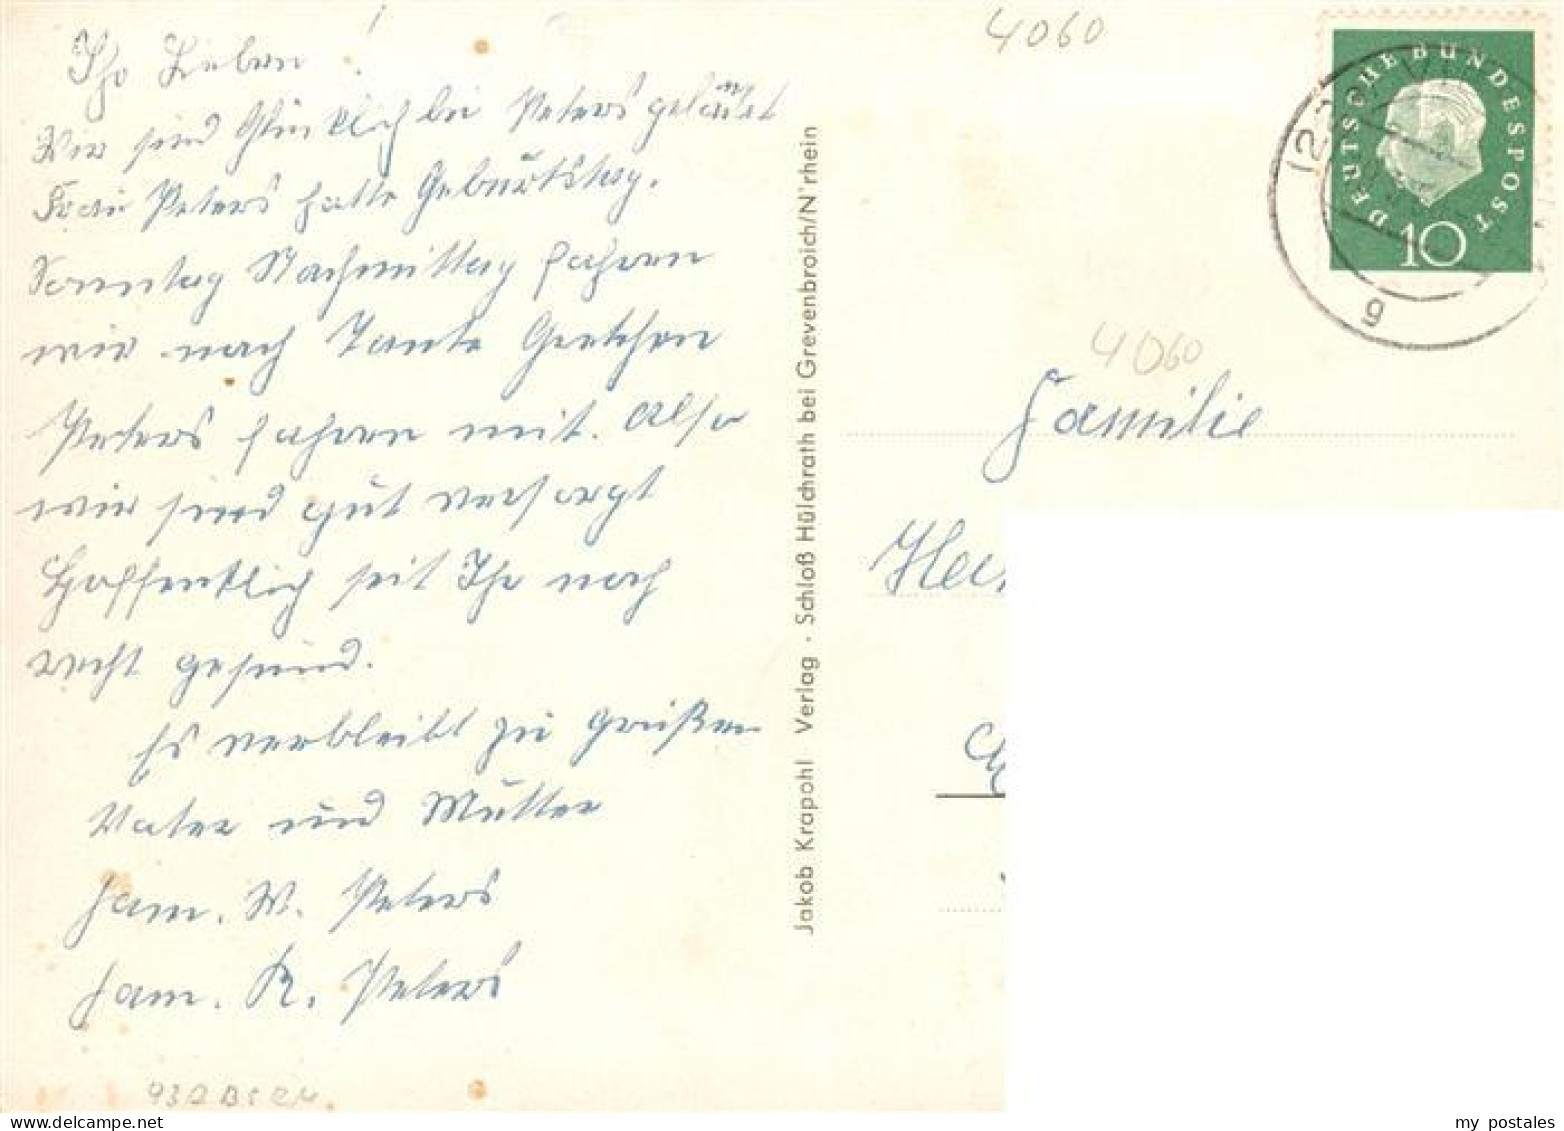 Ihr Lieben!
Wir sind Glücklich bei Peters gelandet
Frau Peters hatte Geburtstag.
Sonntag Nachmittag fahren
wir nach Tante Gretchen
Peters fahren mit. Also
wir sind gut versorgt
Hoffentlich seit Ihr noch
recht gesund.
Es verbleibt zu grüßen
Vater und Mutter
Fam. W. Peters
Fam. R. Peters
Jakob Krapohl Verlag · Schloß Hülchrath bei Grevenbroich/N'rhein
4060
DEUTSCHE BUNDESPOST
10
g
4060
Familie
my postales